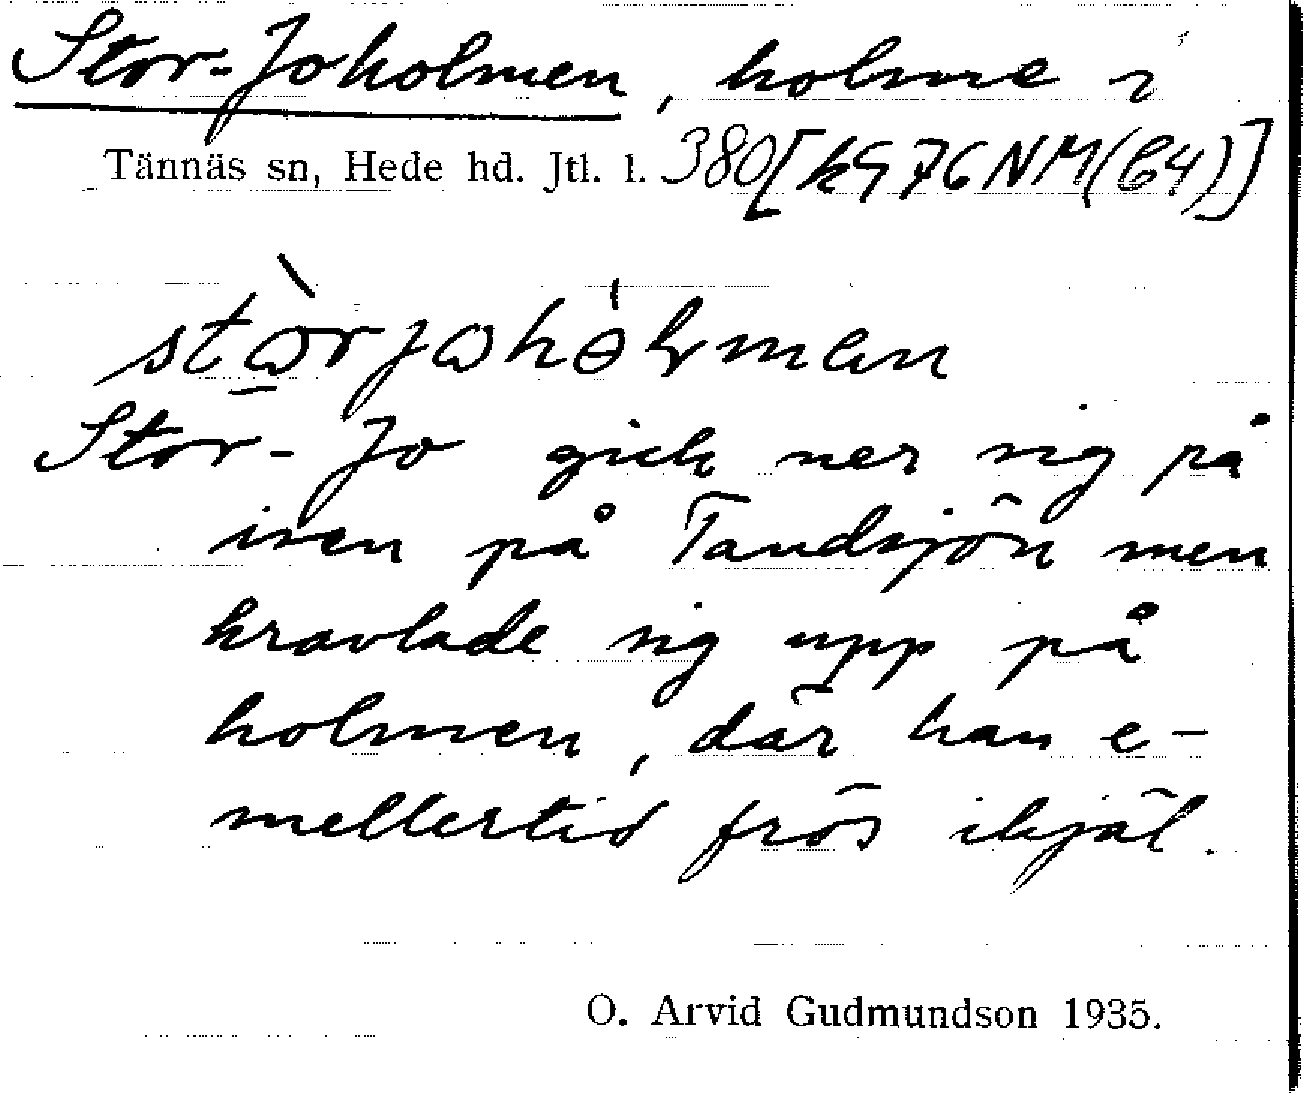 Stor-Joholmen, holme i
Tännäs sn, Hede hd. Jtl. l. 380 [k976NM(64)]
Stor-Jo gick ner sig på
isen på Tandsjön men
kravlade sig upp på
holmen, där han e-
mellertid frös ihjäl.
O. Arvid Gudmundson 1935.